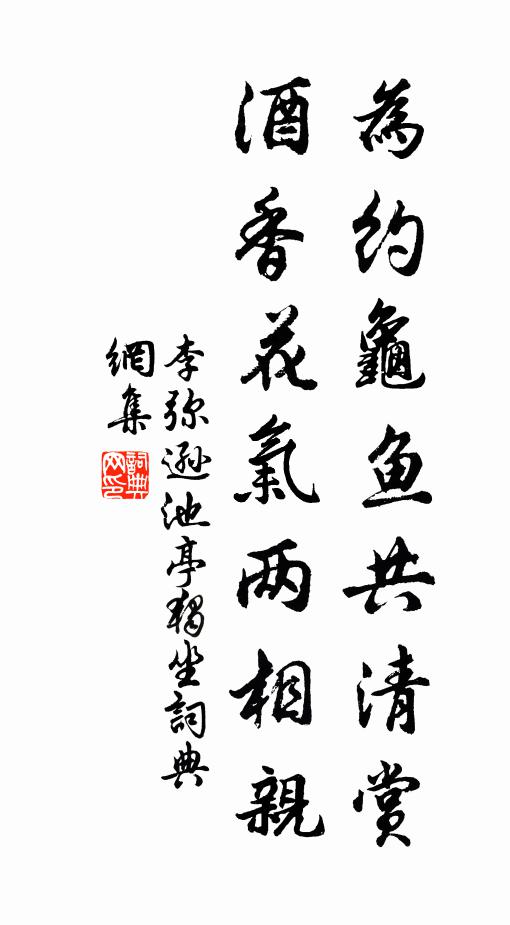 為約龜魚共清賞
酒香花氣兩相親
李弥遜池亭獨坐詞典
網集
詞典網印